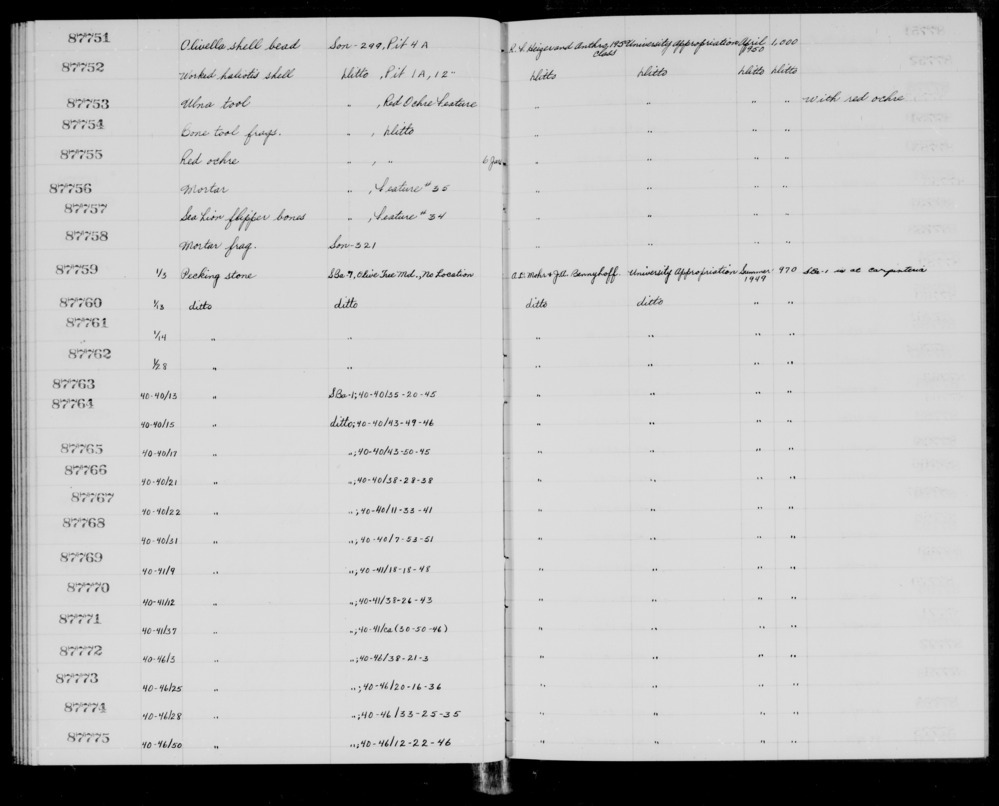 87751 Olivella shell bead Son-299, Pit 4A R.F. Heizer and Anthro. 195 University Appropriation April 1,000
class 1950
87752 Worked haliotis shell ditto , Pit 1A, 12" ditto ditto ditto ditto
87753 Ulna tool " , Red Ochre Feature " " " " with red ochre
87754 Bone tool frags. " , ditto " " " "
87755 Red ochre " , " 6 Jars " " " "
87756 Mortar " , Feature #35 " " " "
87757 Sea Lion flipper bones " , Feature #34 " " " "
87758 Mortar frag. Son-321 " " " "
87759 1/3 Pecking stone SBa-7, Olive Tree Md., No Location A.D. Mohr & J.A. Bennyhoff University Appropriation Summer 970 SBa-1 is at carpinteria
1949
87760 1/13 ditto ditto ditto ditto " "
87761 1/14 " " " " " "
87762 1/28 " " " " " "
87763 40-40/13 " SBa-1; 40-40/35-20-45 " " " "
87764 40-40/15 " ditto; 40-40/43-49-46 " " " "
87765 40-40/17 " "; 40-40/43-50-45 " " " "
87766 40-40/21 " "; 40-40/38-28-38 " " " "
87767 40-40/22 " "; 40-40/11-33-41 " " " "
87768 40-40/31 " "; 40-40/7-53-51 " " " "
87769 40-41/9 " "; 40-41/18-18-48 " " " "
87770 40-41/12 " "; 40-41/38-26-43 " " " "
87771 40-41/37 " "; 40-41/ca (30-50-46) " " " "
87772 40-46/3 " "; 40-46/38-21-3 " " " "
87773 40-46/25 " "; 40-46/20-16-36 " " " "
87774 40-46/28 " "; 40-46/33-25-35 " " " "
87775 40-46/50 " "; 40-46/12-22-46 " " " "